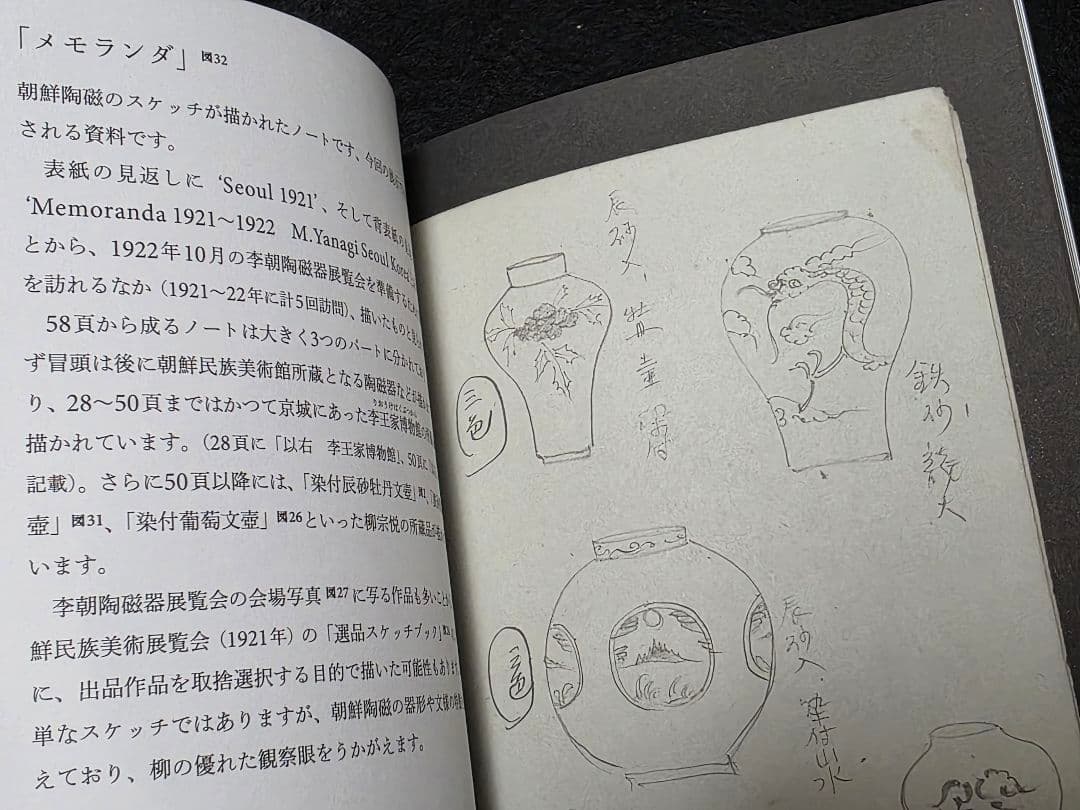 「メモランダ」図32
朝鮮陶磁のスケッチが描かれたノートです、今回の
される資料です。
表紙の見返しに ‘Seoul 1921’、そして背表紙の
‘Memoranda 1921～1922 M.Yanagi Seoul Korea
とから、1922年10月の李朝陶磁器展覧会を準備するため
を訪れるなか（1921～22年に計5回訪問）、描いたものと
58頁から成るノートは大きく3つのパートに分かれており
ず冒頭は後に朝鮮民族美術館所蔵となる陶磁器などが
り、28～50頁まではかつて京城にあった李王家博物館の
描かれています。（28頁に「以右 李王家博物館」、50頁に
記載）。さらに50頁以降には、「染付辰砂牡丹文壺」
壺」図31、「染付葡萄文壺」図26といった柳宗悦の所蔵品が
います。
李朝陶磁器展覧会の会場写真図27に写る作品も多いこと
鮮民族美術展覧会（1921年）の「選品スケッチブック」
に、出品作品を取捨選択する目的で描いた可能性もあります
単なスケッチではありますが、朝鮮陶磁の器形や文様の特徴
えており、柳の優れた観察眼をうかがえます。
辰砂入、
三色
鉄砂
三色
辰砂入、染付山水